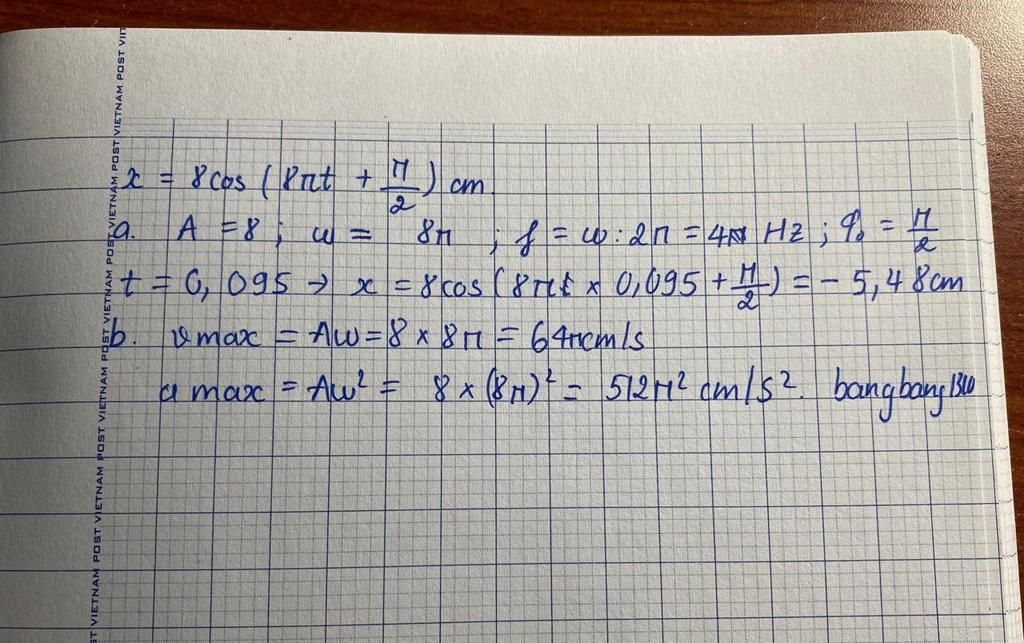 VIETNAM POST VIETNAM POST VIETNAM POST VIETNAM POST VIETNAM POST VIETNAM POST
x = 8cos (8πt + π/2) cm
a. A = 8; ω = 8π; f = ω : 2π = 4 Hz; φ₀ = π/2
t = 0,095 → x = 8cos (8π × 0,095 + π/2) = - 5,48cm
b. vmax = Aω = 8 × 8π = 64πcm/s
a max = Aω² = 8 × (8π)² = 512π² cm/s². bangbang1310